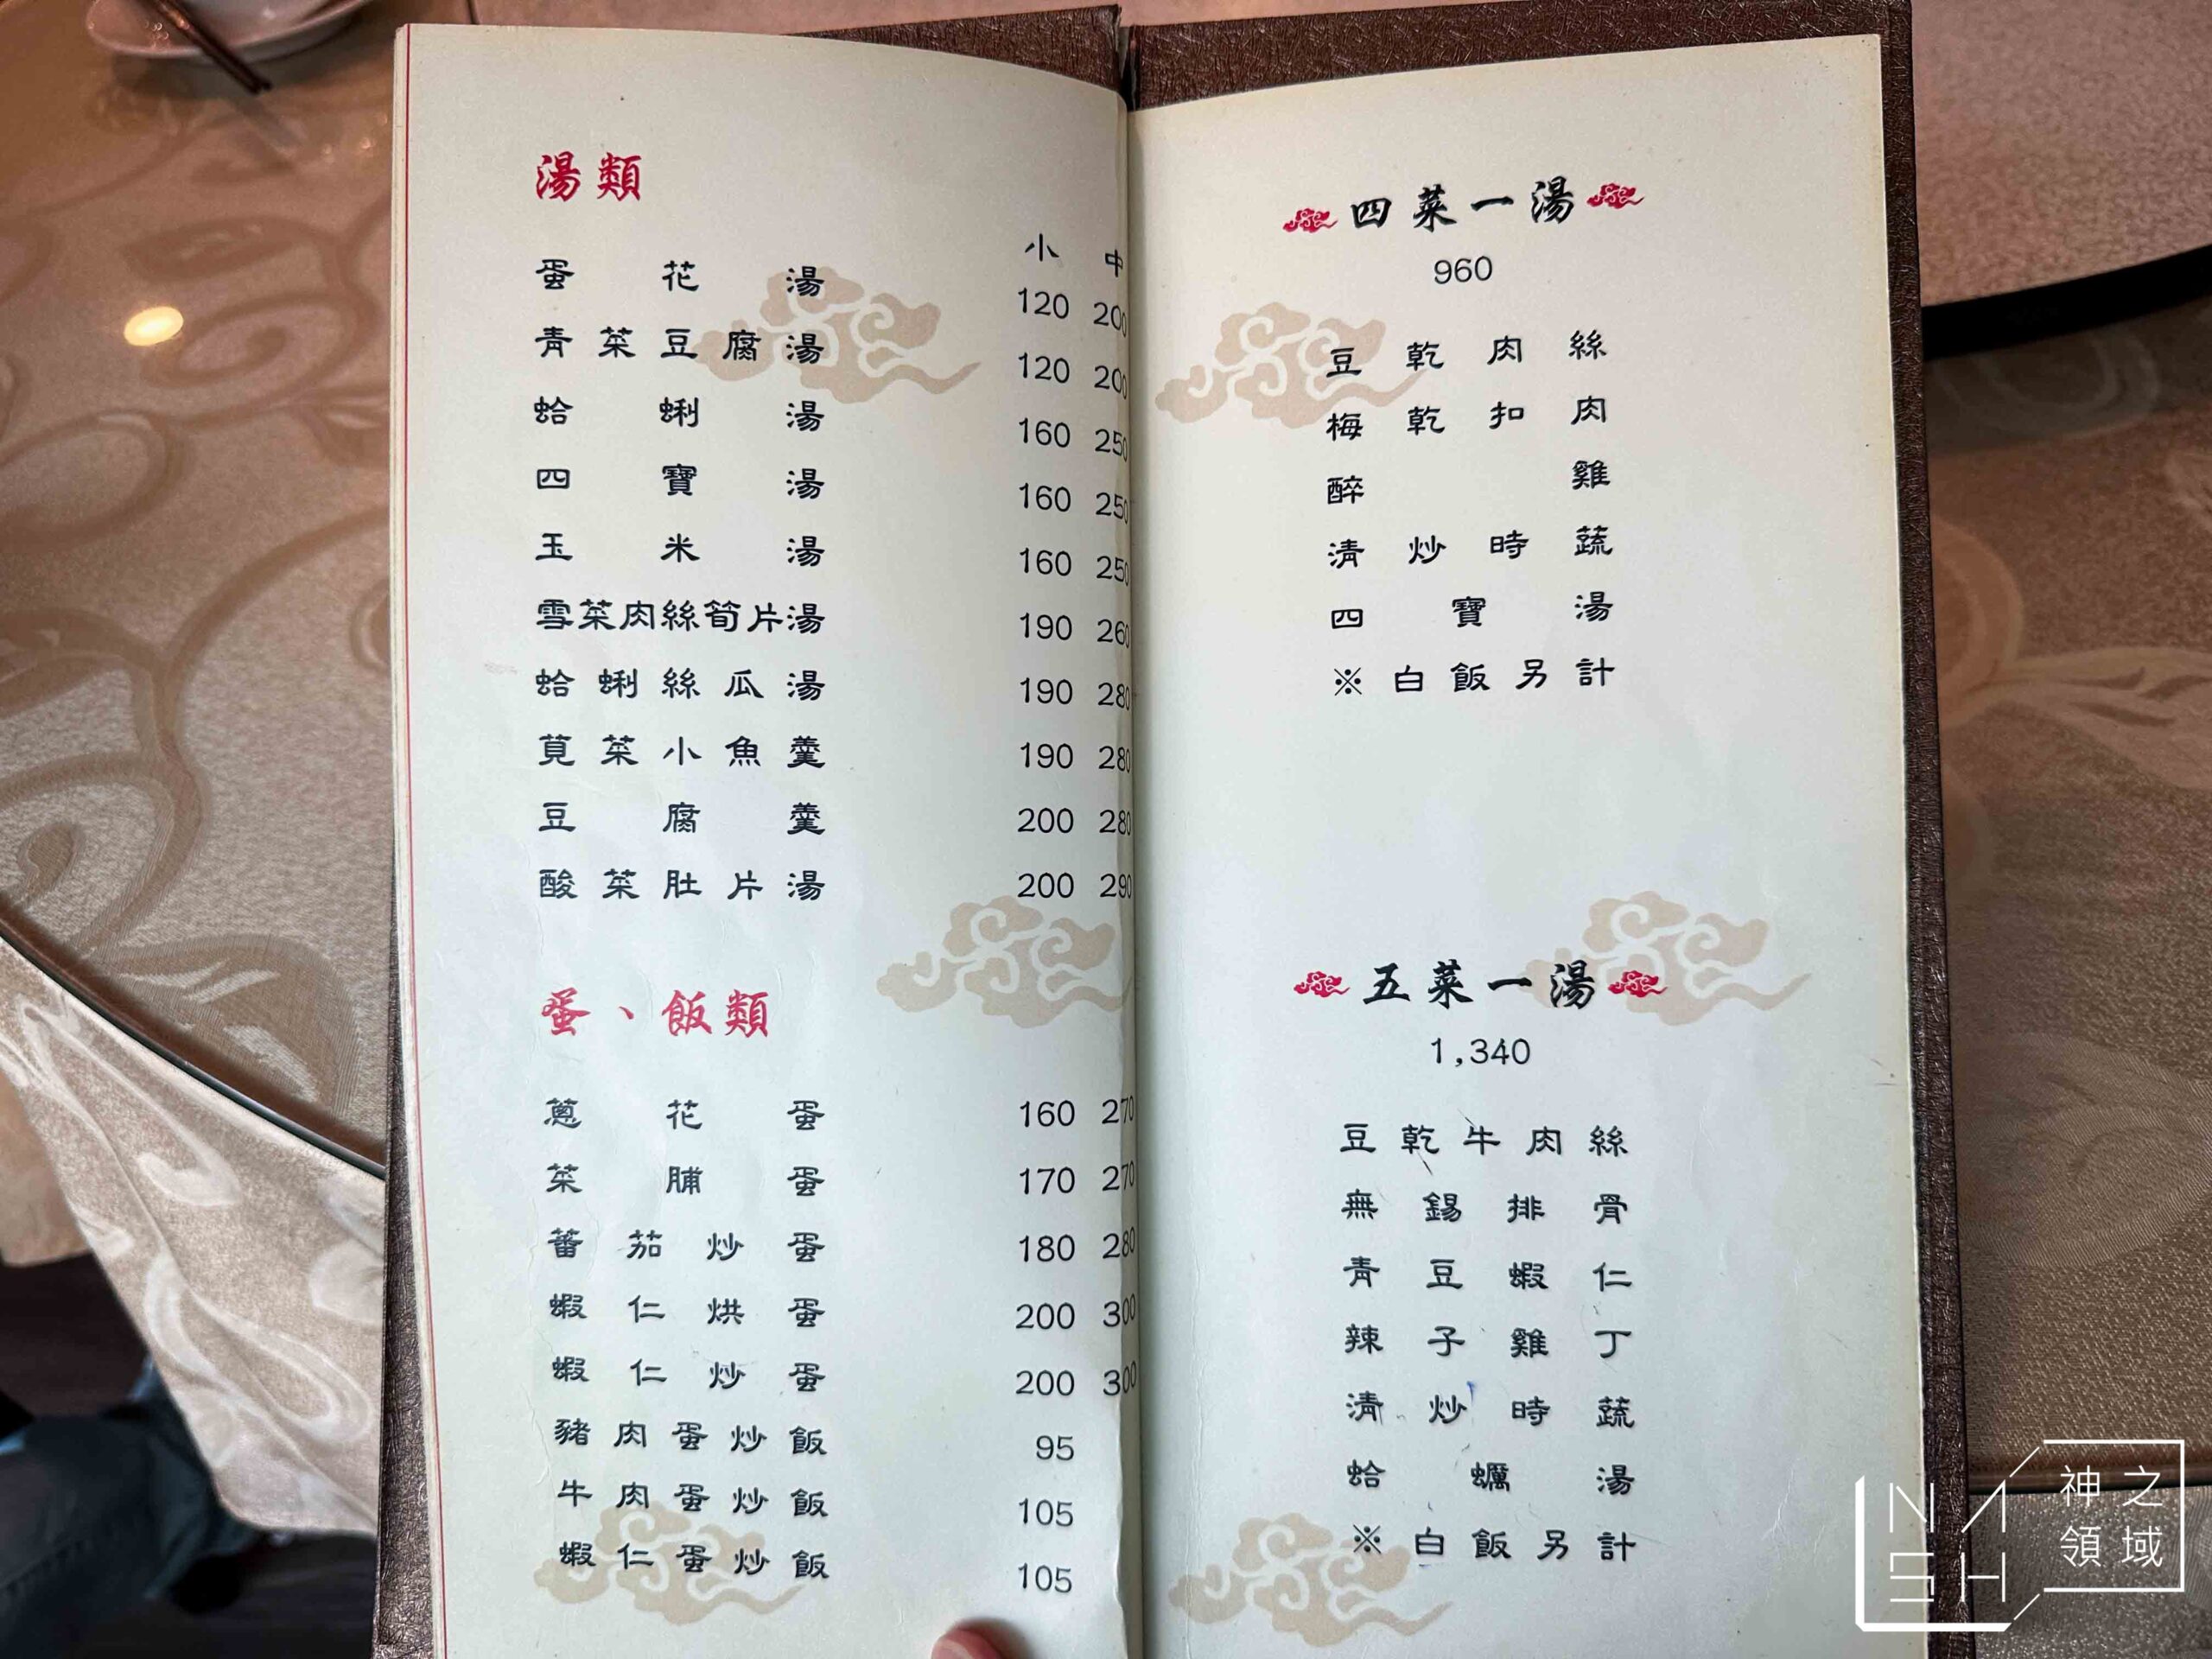 湯類
小 中
蛋花湯 120 200
青菜豆腐湯 120 200
蛤蜊湯 160 250
四寶湯 160 250
玉米湯 160 250
雪菜肉絲筍片湯 190 260
蛤蜊絲瓜湯 190 280
莧菜小魚羹 190 280
豆腐羹 200 280
酸菜肚片湯 200 290
蛋、飯類
蔥花蛋 160 270
菜脯蛋 170 270
蕃茄炒蛋 180 280
蝦仁烘蛋 200 300
蝦仁炒蛋 200 300
豬肉蛋炒飯 95
牛肉蛋炒飯 105
蝦仁蛋炒飯 105
四菜一湯
960
豆乾肉絲
梅乾扣肉
醉雞
清炒時蔬
四寶湯
※白飯另計
五菜一湯
1,340
豆乾牛肉絲
無錫排骨
青豆蝦仁
辣子雞丁
清炒時蔬
蛤蠣湯
※白飯另計
NASH
神之領域